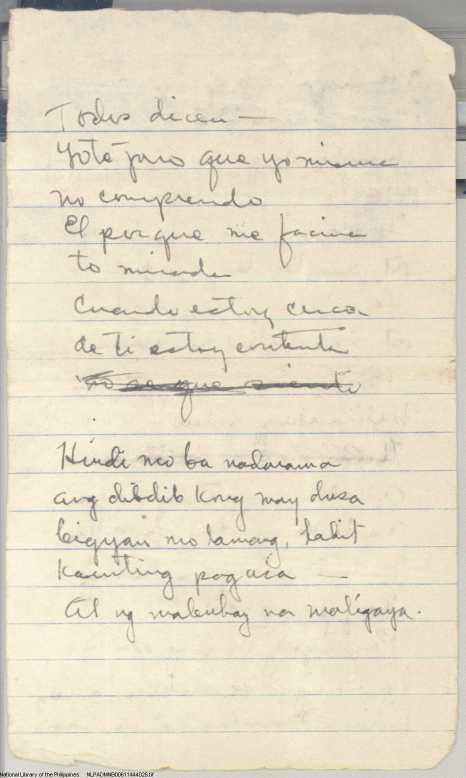 Todos dicen —
Yo te juro que yo misma
no comprendo
El porque me facina
tu mirada
Cuando estoy cerca
de ti estoy contenta
no se que siento
Hindi mo ba nadarama
ang dibdib kong may dusa
bigyan mo lamang, kahit
kaunting pagasa —
At ng mabuhay na maligaya.
National Library of the Philippines NLPADMNB00611444025.tif